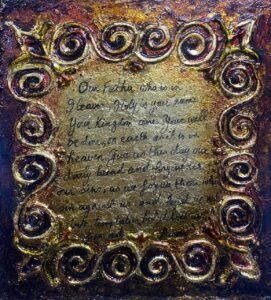 Our Father who is in
Heaven, Holy is your name
Your Kingdom come, Your will
be done, on earth as it is in
heaven. Give us this day our
daily bread and forgive us
our sins, as we forgive those who
sin against us and lead us
not